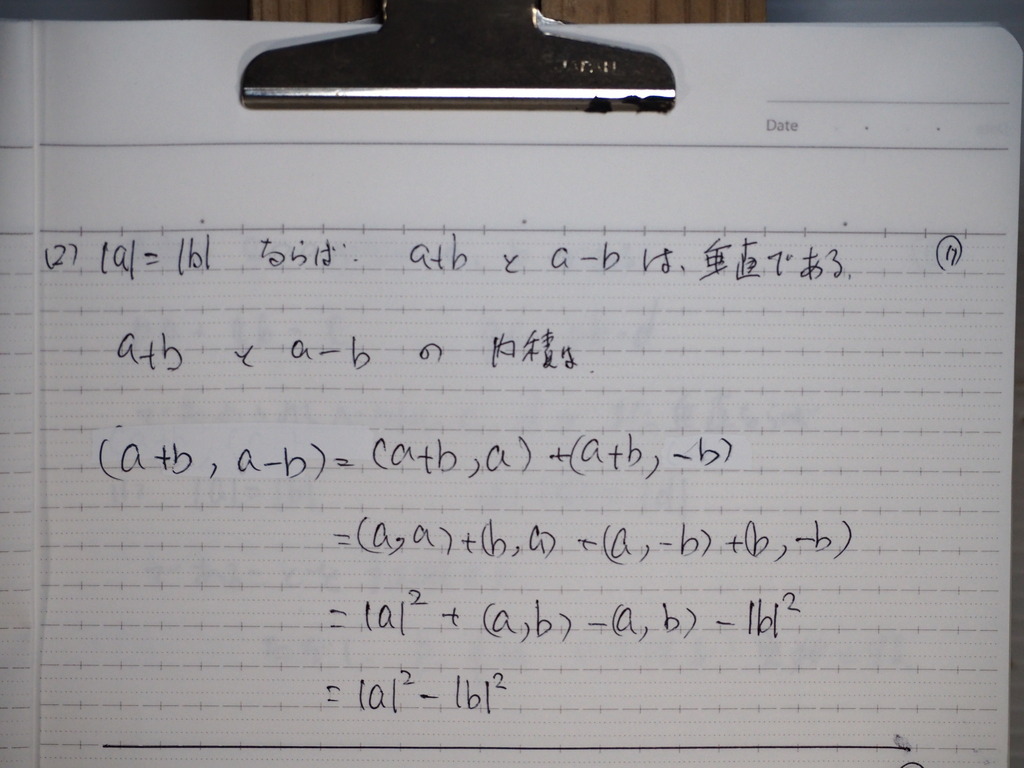 Date
(2) |a| = |b| ならば. a+b と a-b は、垂直である. (11)
a+b と a-b の 内積は.
(a+b, a-b) = (a+b, a) + (a+b, -b)
= (a, a) + (b, a) + (a, -b) + (b, -b)
= |a|² + (a, b) - (a, b) - |b|²
= |a|² - |b|²